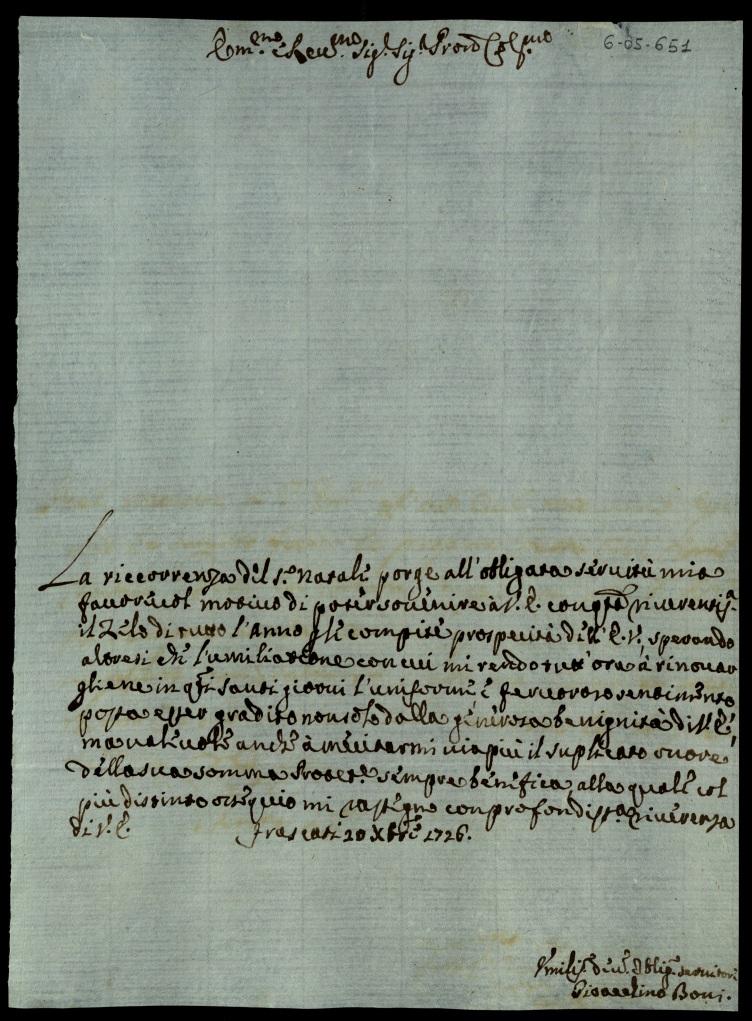 Em.mo e Rev.mo Sig.r Sig.r Pron Col.mo
6-05-651
La riccorrenza del S.o Natale porge all'obligata servitù mia
favorevol motivo di poter sovenire à V. E. con q.ta riverentis.a
il Zelo di tutto l'Anno p le compite prosperità dell' E. V. sperando
altresi che l'umiliazione con cui mi rendo tutt'ora à rinovar
gliene in q.ti santi giorni l'uniforme e fervoroso sentimento
possa esser gradito non solo dalla generosa benignità di V. E,
ma valevole anche à meritarmi viapiù il suplicato onore
della sua somma Protet.e sempre benefica alla quale col
più distinto ossequio mi rassegno con profondiss.a riverenza
di V. E. Frascati 20 Xbre 1726.
Umilis.o dev. oblig. servitore
Boni.